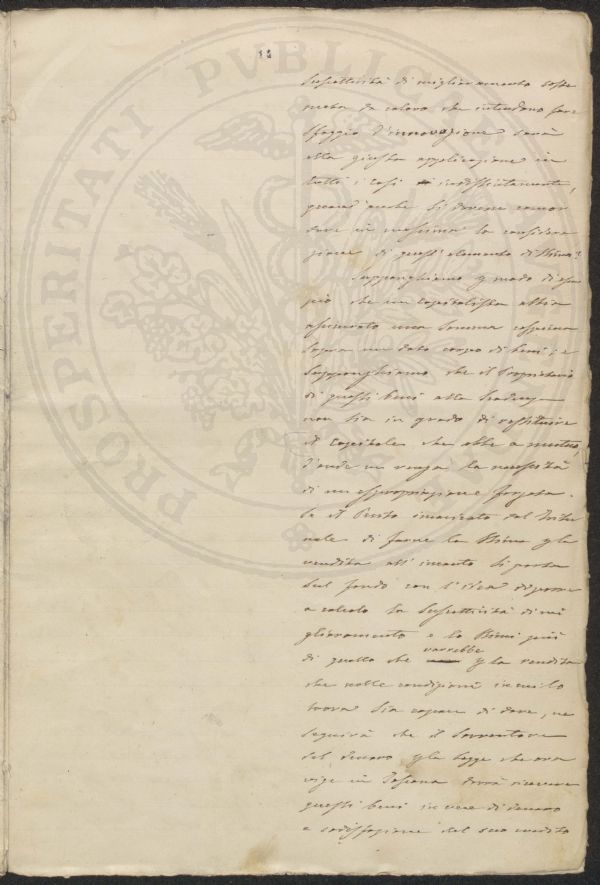 PROSPERITATI PVBLICAE
suscettività di miglioramento soste
nuta da coloro che intendono fare
sfoggio d'innovazione sarà
alla giusta applicazione in
tutti i casi indistintamente,
di questi elemento di Stima?
Supponghiamo p modo di esem
pio che un Capitalista abbia
una somma
sopra un dato corpo di beni; e
Supponghiamo che il Proprietario
di questi beni alla
non sia in grado di restituire
il Capitale che ebbe a mutuo,
d'onde ne venga la necessità
di un espropriazione forzata.
Se il Perito incaricato dal Tribu
nale di farne la Stima p la
vendita all'incanto si porta
sul fondo con l'idea di porre
a calcolo la suscettività di mi
glioramento e lo Stimi più
di quello che varrebbe p la rendita
che nelle condizioni in cui lo
trova sia capace di dare, ne
seguirà che il Sovventore
del denaro p la legge che ora
vige in Toscana dovrà ricevere
questi beni invece di denaro
a sodisfazione del suo credito